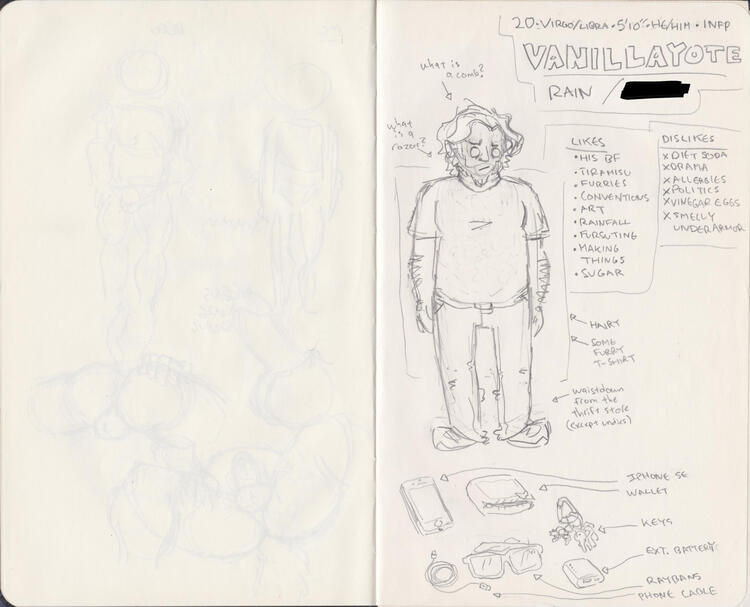 20 · VIRGO/LIBRA · 5'10" · HE/HIM · INFP
VANILLAYOTE
RAIN /
what is
a comb?
what
is a
razor?
LIKES
• HIS BF
• TIRAMISU
• FURRIES
• CONVENTIONS
• ART
• RAINFALL
• FURSUITING
• MAKING
THINGS
• SUGAR
DISLIKES
x DIET SODA
x DRAMA
x ALLERGIES
x POLITICS
x VINEGAR EGGS
x SMELLY
UNDERARMOR
HAIRY
SOME
FURRY
T-SHIRT
waistdown
from the
thrift store
(except undies)
IPHONE SE
WALLET
KEYS
EXT. BATTERY
RAYBANS
PHONE CABLE